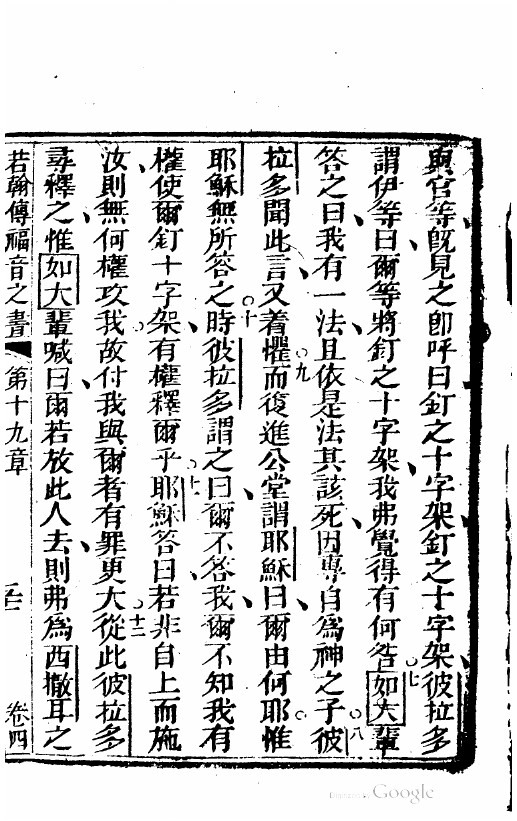 與官等既見之即呼曰釘之十字架釘之十字架彼拉多
謂伊等曰爾等將釘之十字架我弗覺得有何咎○七如大輩
答之曰我有一法且依是法其該死因專自為神之子○八彼
拉多聞此言又着懼○九而復進公堂謂耶穌曰爾由何耶惟
耶穌無所答之○十時彼拉多謂之曰爾不答我爾不知我有
權使爾釘十字架有權釋爾乎○十一耶穌答曰若非自上而施
汝則無何權攻我故付我與爾者有罪更大○十二從此彼拉多
尋釋之惟如大輩喊曰爾若放此人去則弗為西撒耳之
若翰傳福音之書 第十九章 卷四
Google